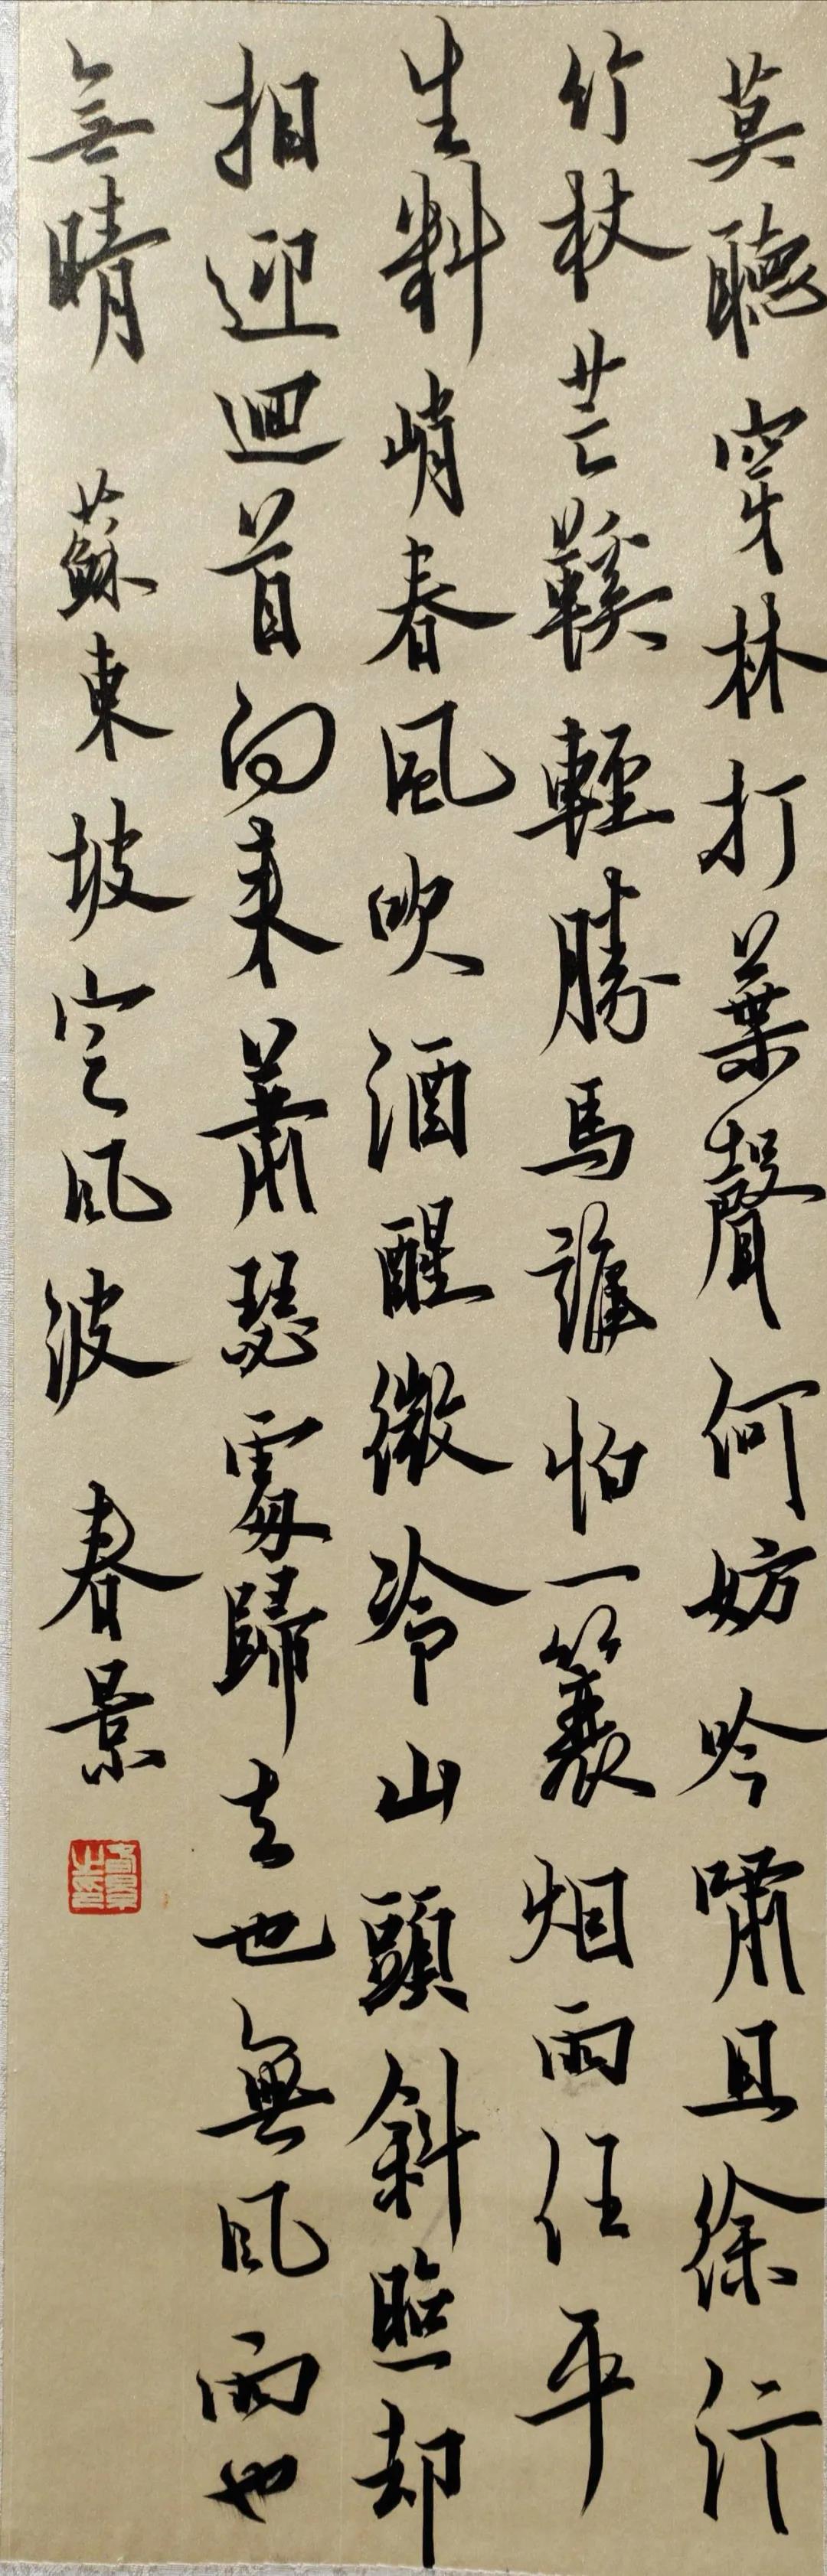 莫聽穿林打葉聲何妨吟嘯且徐行
竹杖芒鞵輕勝馬誰怕一蓑烟雨任平
生料峭春風吹酒醒微冷山頭斜照却
相迎迴首向来蕭瑟處歸去也無風雨也
無晴 蘇東坡定風波 春景